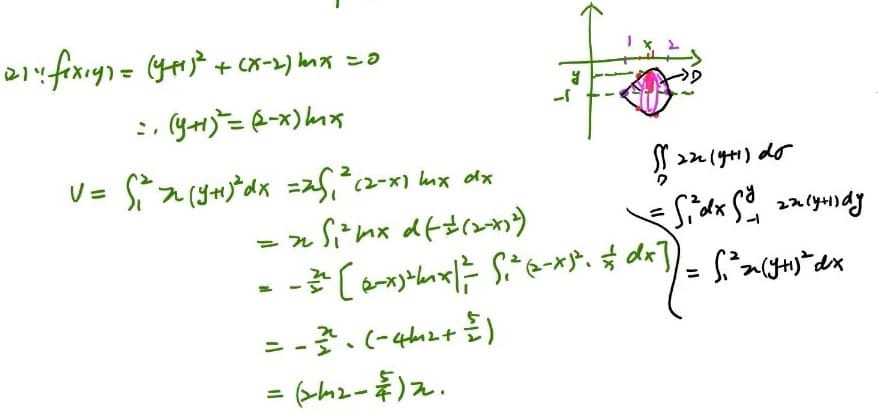 (2) ∵ f(x,y) = (y+1)² + (x-2) ln x = 0
∴ (y+1)² = (2-x) ln x
V = ∫₁² π(y+1)² dx = π∫₁² (2-x) ln x dx
= π ∫₁² ln x d(-½(2-x)²)
= -π/2 [(2-x)² ln x |₁² - ∫₁² (2-x)² · 1/x dx]
= -π/2 · (-4ln2 + 5/2)
= (2ln2 - 5/4)π.
1 x 2
y
-1
D
∬_D 2π(y+1) dσ
= ∫₁² dx ∫₋₁^y 2π(y+1) dy
= ∫₁² π(y+1)² dx